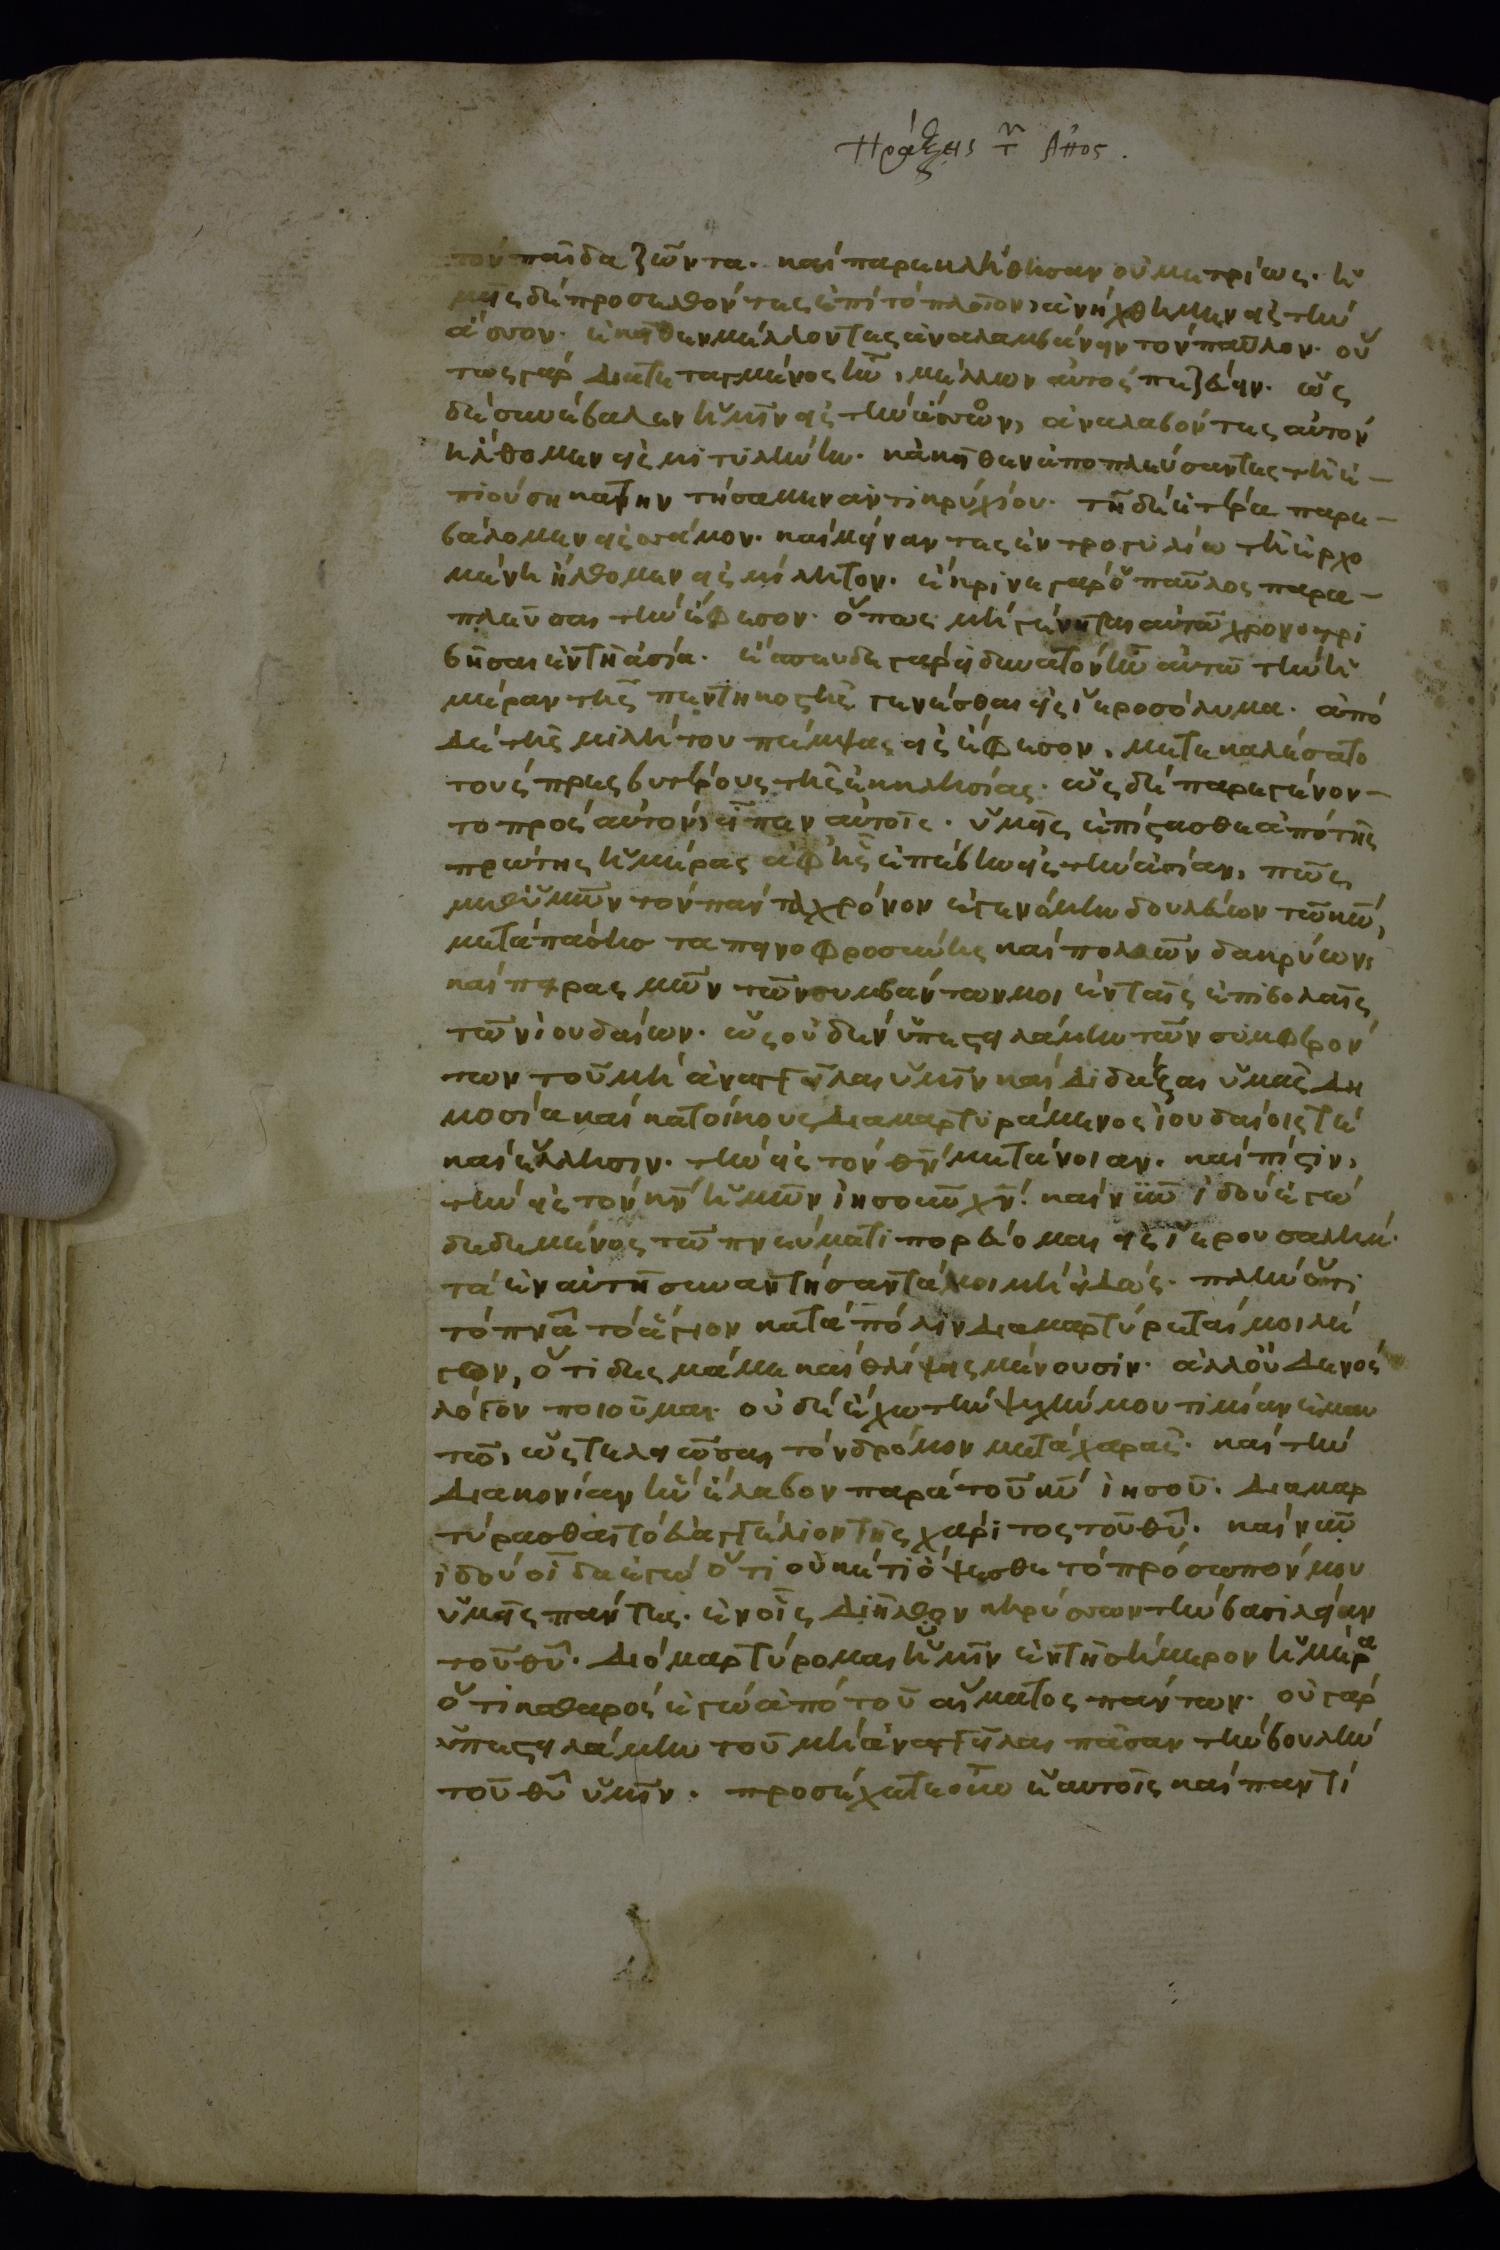 Πράξεις τ̑ Ἀπος.
τὸν παῖδα ζῶντα. καὶ παρεκλήθησαν οὐ μετρίως. ἡ
μεῖς δὲ προσελθόντες ἐπὶ τὸ πλοῖον, ἀνήχθημεν εἰς τὴν
ἄσσον. ἐκεῖθεν μέλλοντες ἀναλαμβάνειν τὸν παῦλον. οὕ
τως γὰρ διατεταγμένος ἦν, μέλλων αὐτὸς πεζεύειν. ὡς
δὲ συνέβαλεν ἡμῖν εἰς τὴν ἄσσον, ἀναλαβόντες αὐτὸν
ἤλθομεν εἰς μιτυλήνην. κἀκεῖθεν ἀποπλεύσαντες τῇ ἐ-
πιούσῃ κατηντήσαμεν ἀντικρὺ χίου. τῇ δὲ ἑτέρα παρε-
βάλομεν εἰς σάμον. καὶ μείναντες ἐν τρογυλίω τῇ ἐρχο
μένη ἤλθομεν εἰς μίλητον. ἔκρινε γὰρ ὁ παῦλος παρα-
πλεῦσαι τὴν ἔφεσον. ὅπως μὴ γένηται αὐτῶ χρονοτρι
βῆσαι ἐν τῇ ἀσία. ἔσπευδε γὰρ εἰ δυνατὸν ἦν αὐτῶ τὴν ἡ
μέραν τῆς πεντηκοστῆς γενέσθαι εἰς ἱεροσόλυμα. ἀπὸ
δὲ τῆς μιλήτου πέμψας εἰς ἔφεσον, μετεκαλέσατο
τοὺς πρεσβυτέρους τῆς ἐκκλησίας. ὡς δὲ παρεγένον-
το πρὸς αὐτὸν, εἶπεν αὐτοῖς. ὑμεῖς ἐπίστασθε ἀπὸ τῆς
πρώτης ἡμέρας ἀφ' ἧς ἐπέβην εἰς τὴν ἀσίαν, πῶς
μεθ' ὑμῶν τὸν πάντα χρόνον ἐγενόμην δουλεύων τῶ κω̅,
μετὰ πάσης ταπεινοφροσύνης καὶ πολλῶν δακρύων,
καὶ πειρασμῶν τῶν συμβάντων μοι ἐν ταῖς ἐπιβολαῖς
τῶν ἰουδαίων. ὡς οὐδὲν ὑπεστειλάμην τῶν συμφερόν
των τοῦ μὴ ἀναγγεῖλαι ὑμῖν καὶ διδάξαι ὑμᾶς δη
μοσία καὶ κατοίκους διαμαρτυράμενος ἰουδαίοις τὲ
καὶ ἕλλησιν. τὴν εἰς τὸν θν̅ μετάνοιαν. καὶ πίστιν,
τὴν εἰς τὸν κν̅ ἡμῶν ἰησοῦν χν̅. καὶ νῦν ἰδοὺ ἐγὼ
δεδεμένος τῶ πνεύματι πορεύομαι εἰς ἱερουσαλήμ.
τὰ ἐν αὐτῇ συναντήσαντά μοι μὴ εἰδώς. πλὴν ὅτι
τὸ πνα̅ τὸ ἅγιον κατὰ πόλιν διαμαρτύρεταί μοι λέ
γον, ὅτι δεσμά με καὶ θλίψεις μένουσιν. ἀλλ' οὐδενὸς
λόγον ποιοῦμαι. οὐδὲ ἔχω τὴν ψυχήν μου τιμίαν ἐμαυ
τῶ, ὡς τελειῶσαι τὸν δρόμον μετὰ χαρᾶς. καὶ τὴν
διακονίαν ἣν ἔλαβον παρὰ τοῦ κυ̅ ἰησοῦ. διαμαρ
τύρασθαι τὸ εὐαγγέλιον τῆς χάριτος τοῦ θυ̅. καὶ νῦν
ἰδοὺ οἶδα ἐγὼ ὅτι οὐκέτι ὄψεσθε τὸ πρόσωπόν μου
ὑμεῖς πάντες. ἐν οἷς διῆλθον κηρύσσων τὴν βασιλείαν
τοῦ θυ̅. διὸ μαρτύρομαι ὑμῖν ἐν τῇ σήμερον ἡμέρα
ὅτι καθαρὸς ἐγὼ ἀπὸ τοῦ αἵματος πάντων. οὐ γὰρ
ὑπεστειλάμην τοῦ μὴ ἀναγγεῖλαι πᾶσαν τὴν βουλὴν
τοῦ θυ̅ ὑμῖν. προσέχετε οὖν ἑαυτοῖς καὶ παντὶ